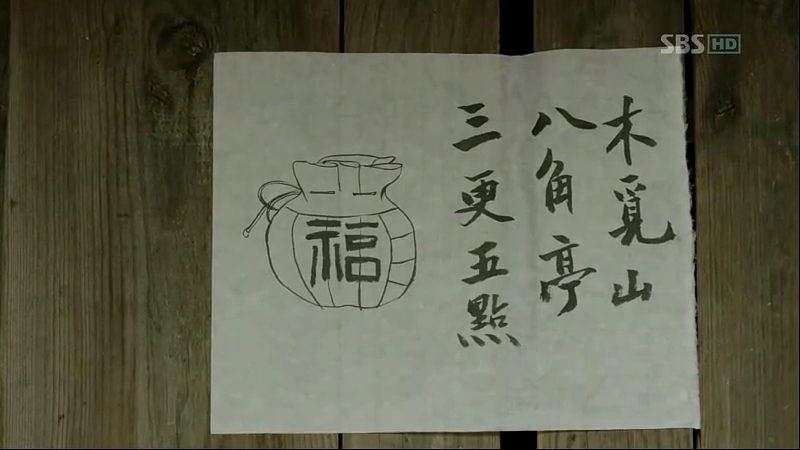 木覓山
八角亭
三更五點
福
SBS HD